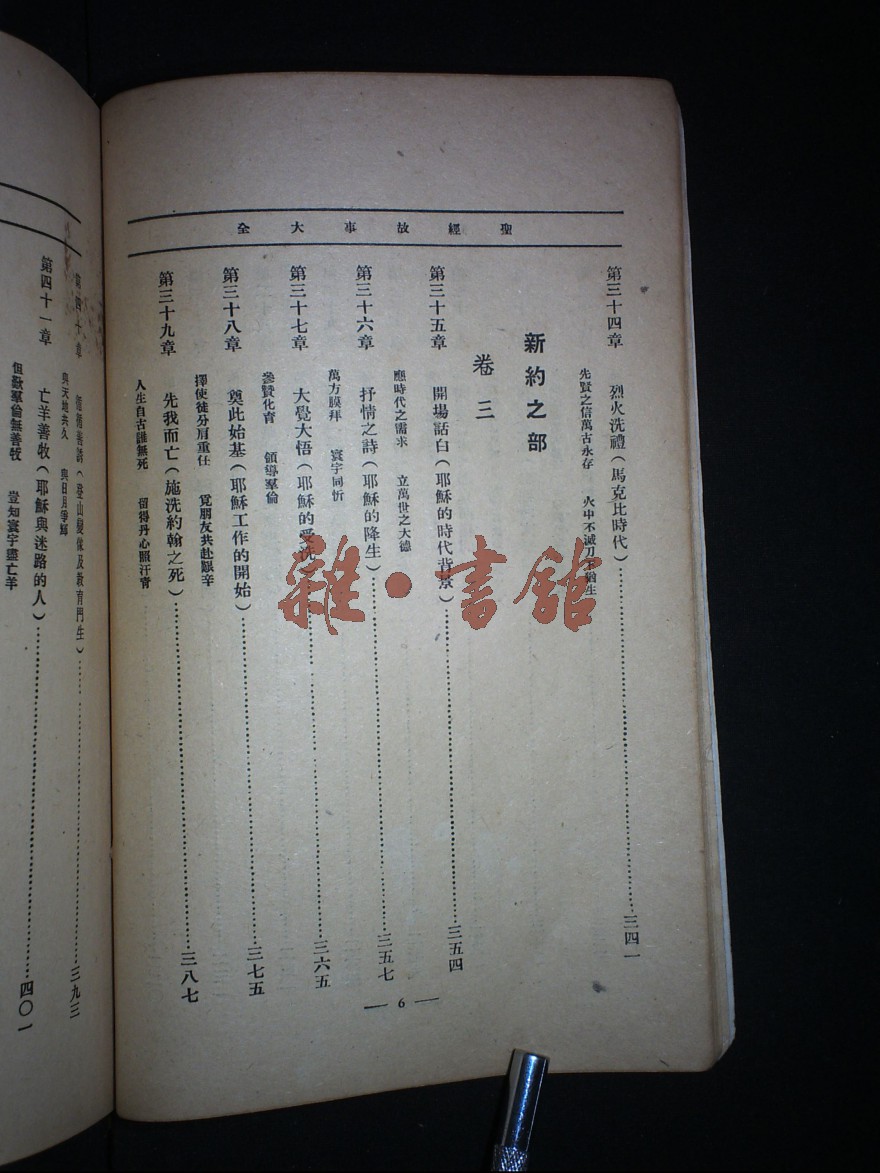 聖經故事大全
第三十四章 烈火洗禮（馬克比時代）……三四一
先賢之信萬古永存 火中不滅刀下猶生
新約之部
卷三
第三十五章 開場話白（耶穌的時代背景）……三五四
應時代之需求 立萬世之大德
第三十六章 抒情之詩（耶穌的降生）……三五七
萬方膜拜 寰宇同忻
第三十七章 大覺大悟（耶穌的受洗）……三六五
參贊化育 領導羣倫
第三十八章 奠此始基（耶穌工作的開始）……三七五
擇使徒分肩重任 覓朋友共赴艱辛
第三十九章 先我而亡（施洗約翰之死）……三八七
人生自古誰無死 留得丹心照汗青
— 6 —
第四十章 循循善誘（登山變像及教育門生）……三九三
與天地共久 與日月爭輝
第四十一章 亡羊善牧（耶穌與迷路的人）……四〇一
但歎羣倫無善牧 豈知寰宇盡亡羊
雜·書館